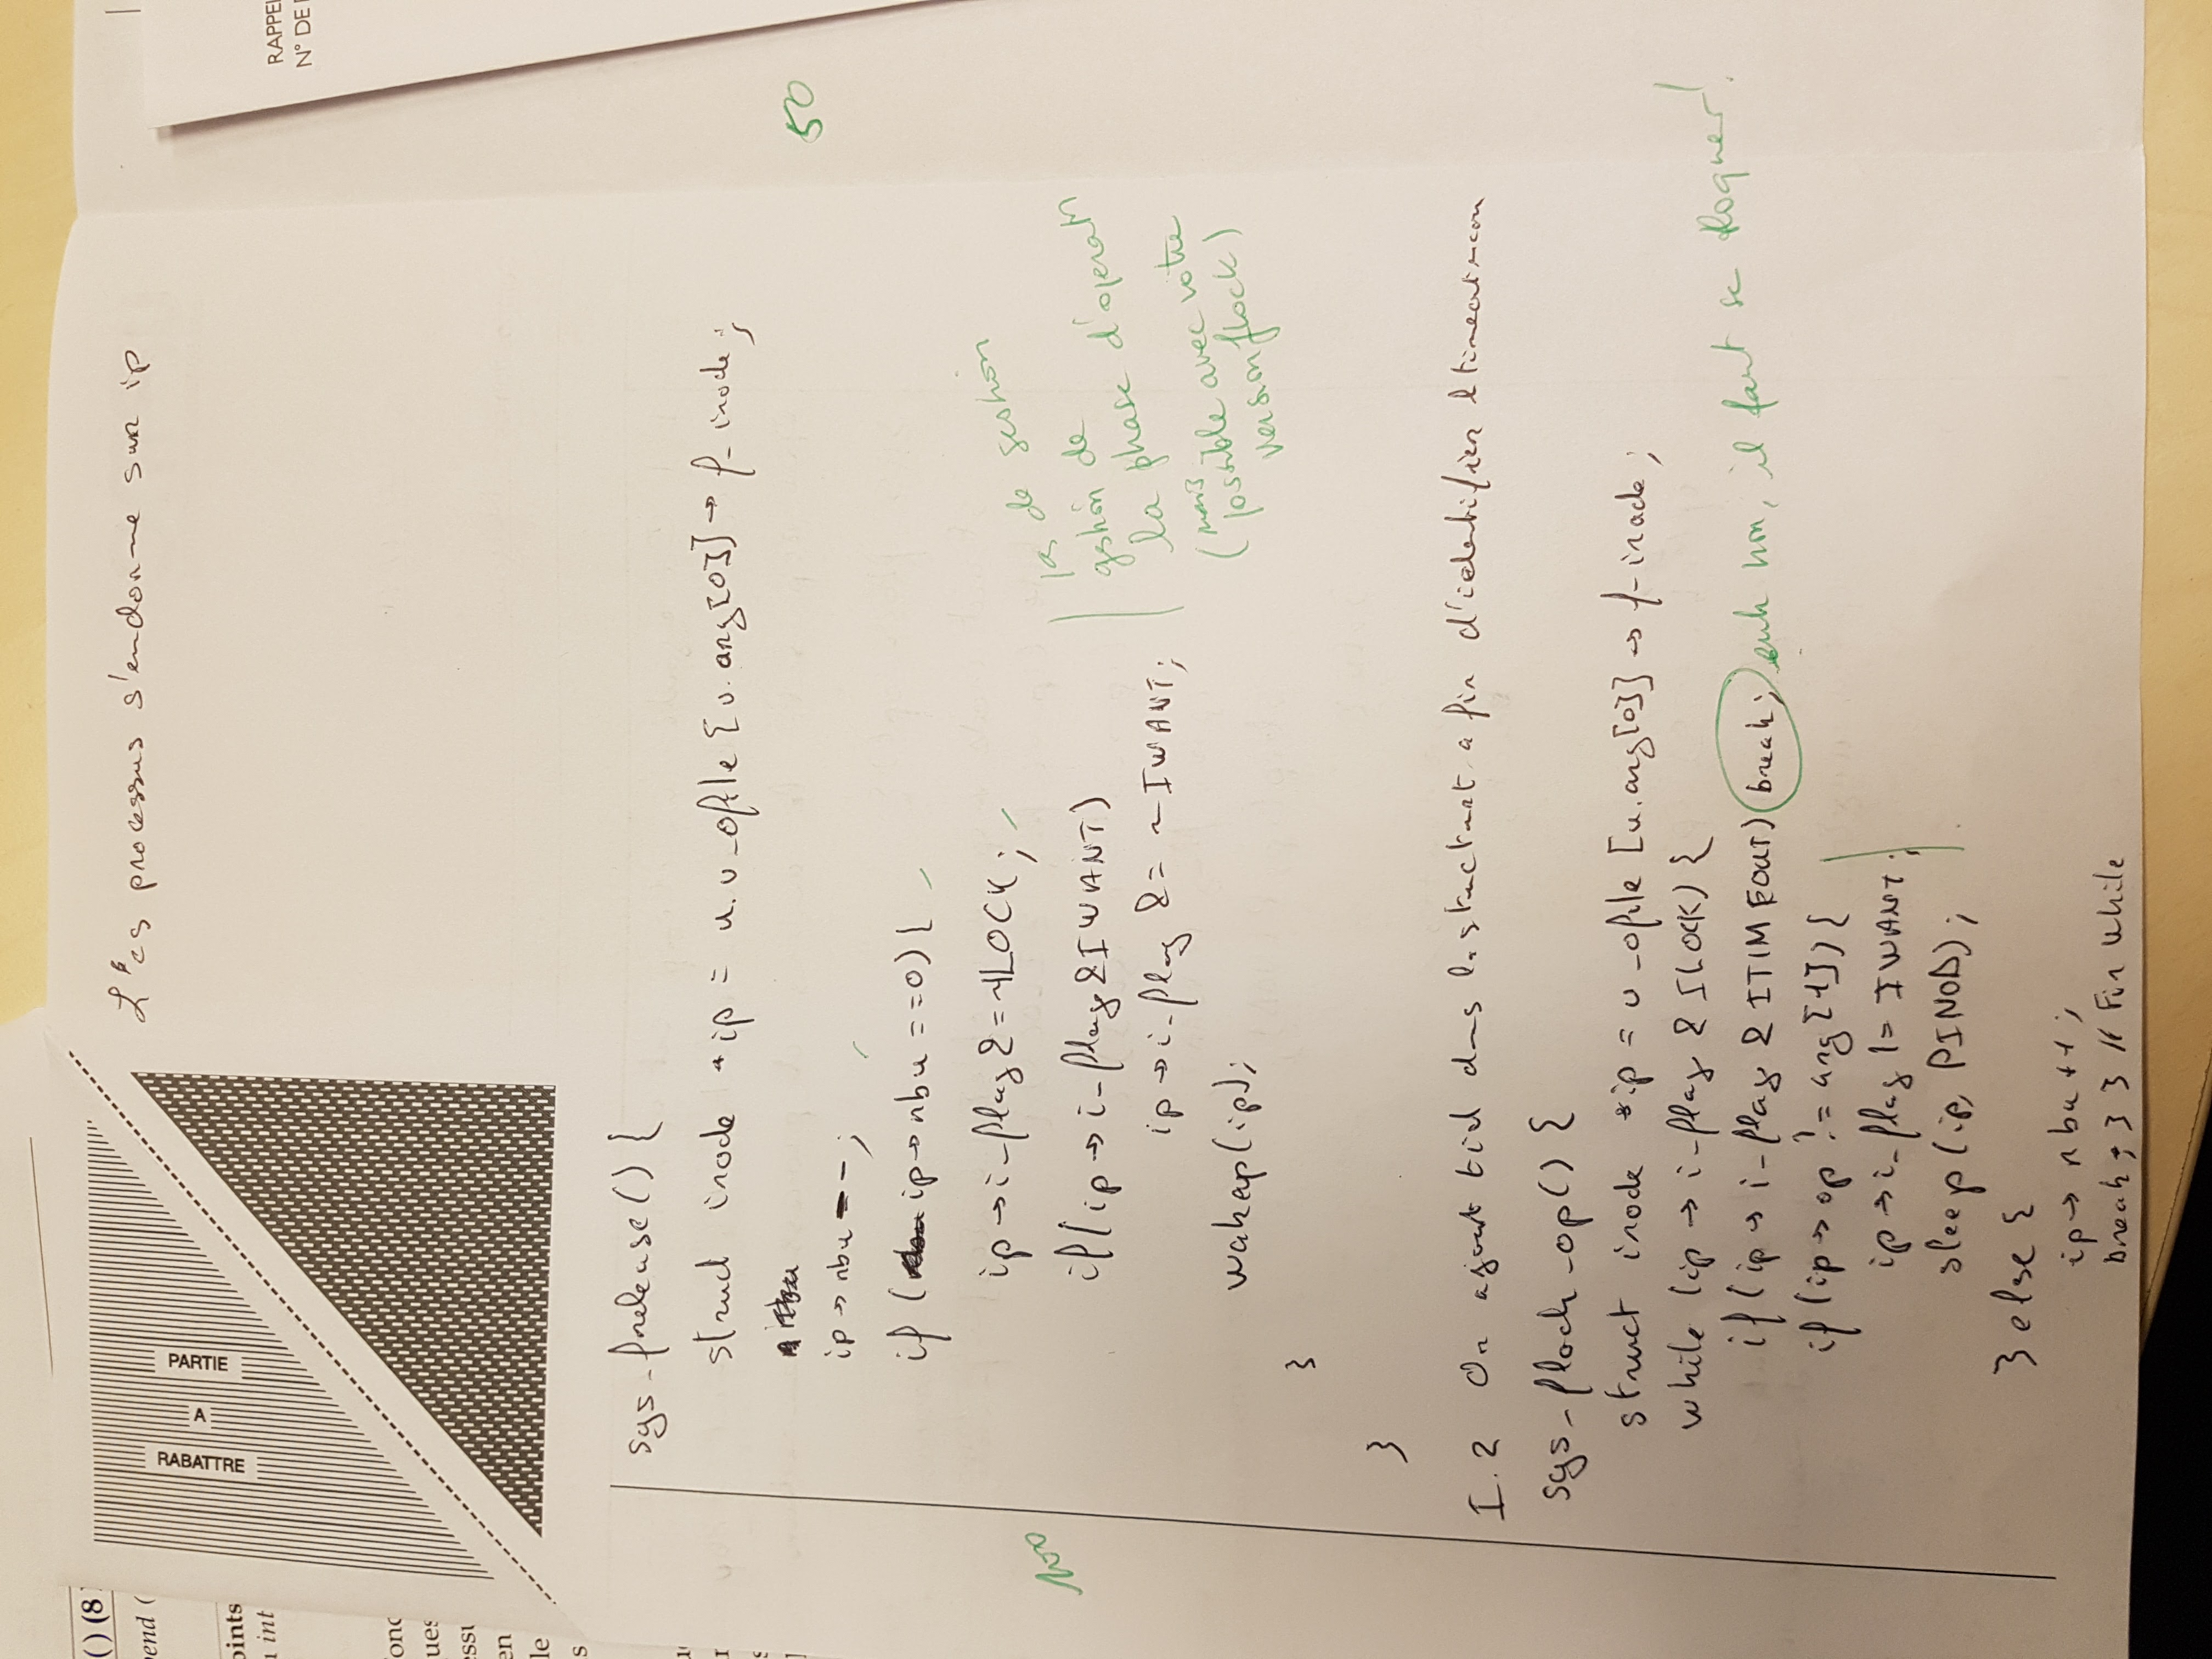 () (8
end (
oints
int
onc
ques
essu
en
le
s
PARTIE
A
RABATTRE
L'es processus s'endorme sur ip
RAPPEL
N° DE
sys_frelease() {
struct inode *ip = u.u_ofile [u.arg[0]] → f_inode;
ip → nbu --;
50
if (ip → nbu == 0) {
ip → i_flag &= ~ILOCK;
100
if (ip → i_flag & IWANT)
ip → i_flag &= ~IWANT;
wakeup(ip);
}
}
pas de gestion
gestion de
la phase d'operatn
(mais
possible avec votre
version flock)
I.2 On ajout tid dans la structure a fin d'identifier
sys_flock_op() {
struct inode *ip = u_ofile [u.arg[0]] → f_inode;
while (ip → i_flag & ILOCK) {
if (ip → i_flag & ITIMEOUT) break; euh non, il faut se bloquer!
if (ip → op != arg[1]) {
ip → i_flag |= IWANT;
sleep (ip, PINOD);
} else {
ip → nbu ++;
break; } } // Fin while